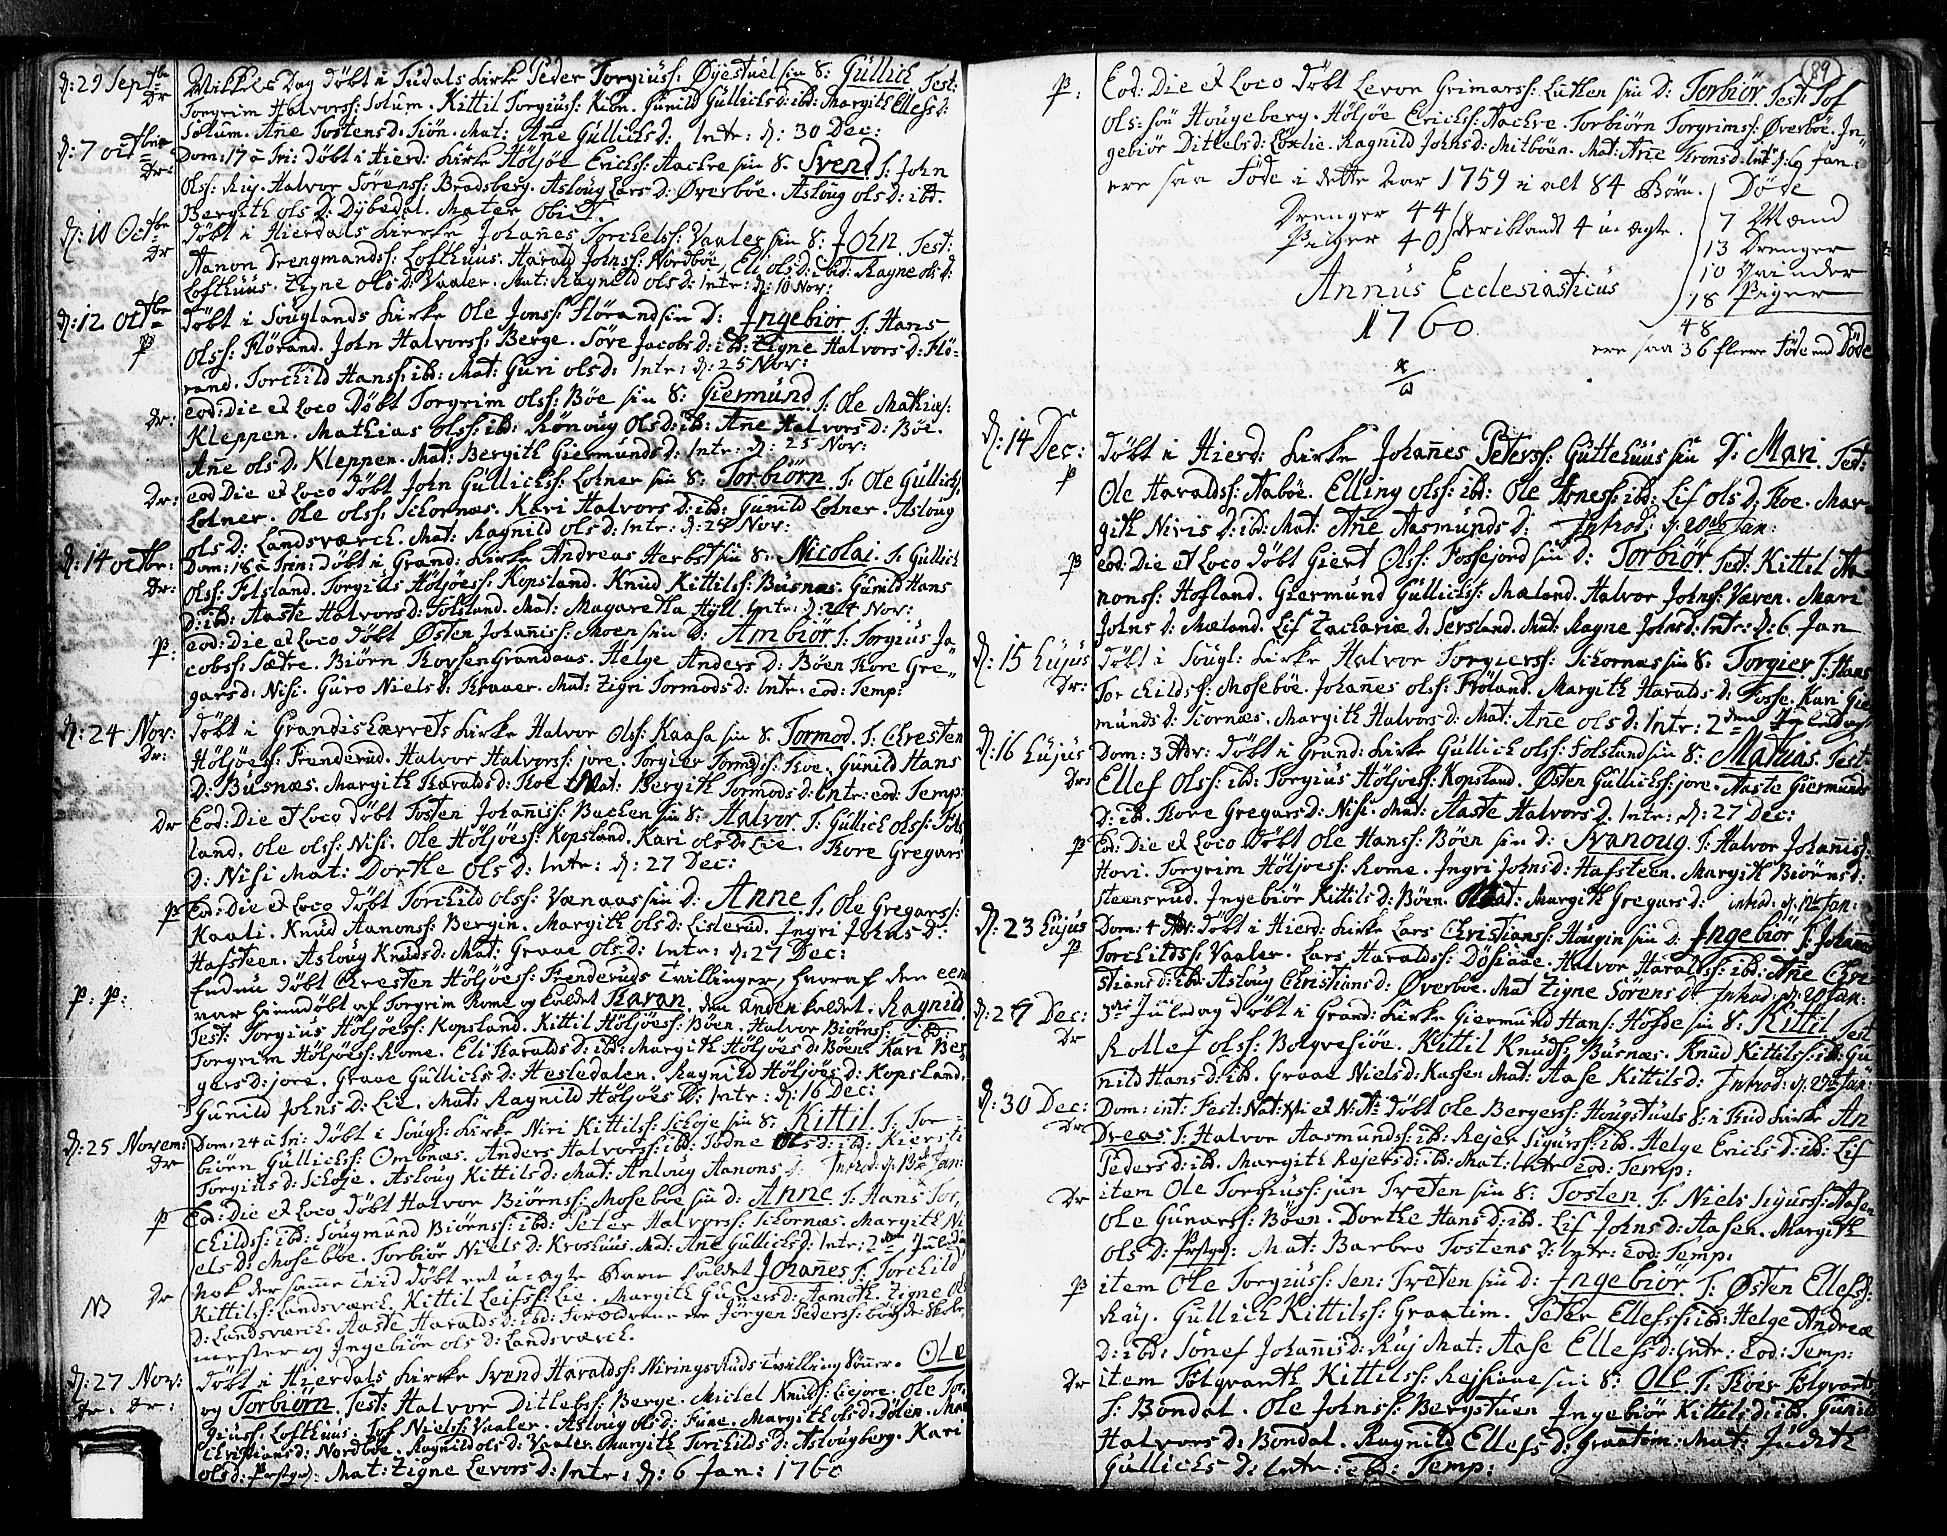 d: 29 Septbr Mikkels Dag døbt i Tudals Kirke Peder Torgiuss: Øyestuel sin S: Gullich Test:
Dr Torgrim Halvorss: Solum. Kittil Torgiuss: Kion. Gunild Gullichsd: ibd: Margith Ellefsd:
Solum. Añe Tostensd: Tiön. Mat: Añe Gullichsd: Intr: d: 30 Dec:
d: 7 octbr Dom: 17 a Tri: døbt i Hierd: Kirke Höljöe Erichs: Aackre sin S. Svend T: John
Dr: Olss: Ruj. Halvor Sörenss: Bradsberg. Asloug Lars D: Øverböe. Aslöug ols D: ibd.
Bergith ols D: Dÿbedal. Mater Obiit.
d: 10 Octbr døbt i Hierdals Kirke Johañes Torchelss: Vaaler sin S: John. Test:
Dr Aanon Drengmandss: Lofthuus. Harald Johnss: Nordböe, Eli ols D: ibid: Ragne ols d:
Lofthuus. Zigne ols D: Vaaler. Mat: Ragnild ols D: Intr: d: 10 Nov:
d: 12 Octbr døbt i Souglands Kirke Ole Jonss: Flörand sin D: Ingebiör T: Hans
P Olss: Flörand. John Halvorss: Berge. Söre Jacobs D: ibd: Zigne Halvors D: Flö-
rand. Torchild Hanss: ibd: Mat: Guri ols D: Intr: d: 25 Nov:
Dr: eod: Die et Loco Døbt Torgrim olss: Böe sin S: Giermund T: Ole Mathias:
Kleppen. Mathias olss: ibd: Rönoug Ols D: ib: Añe Halvors D: Böe.
Añe ols D: Kleppen. Mat: Bergith Giermunds D: Intr: d: 25 Nov:
Dr: eod Die et Loco døbt John Gullichss: Lohner sin S: Torbiörn T: Ole Gullichs:
Lohner. Ole olss: Schornæs. Kari Halvors D: ibd: Gunild Lohner. Asloug
ols D: Landsværch. Mat: Ragnild ols D: Intr: d: 25 Nov:
d: 14 octbr: Dom: 18 a Trin: Døbt i Grand: Kirke Andreas Herbst sin S: Nicolai T: Gullich
Dr: Olss: Folsland. Torgius Höljöess: Kopsland. Knud Kittilss: Busnæs. Gunild Hans
D: ibd: Aaste Halvors D: Folsland. Mat: Magaretha Hÿll. Intr: d: 24 Nov:
P: eod: Die et Loco døbt Østen Johañiss: Moen sin D: Ambiör T: Torgius Ja-
cobss: Sætre. Biörn Grandaus. Helge Anders D: Böen Thore Gre-
gars d: Nisi. Guro Niels d: Mat: Zigri Tormods D: Intr: eod: Temp:
d: 24 Nov: døbt i Grandsherrets Kirke Halvor Olss: Kaasa sin S: Tormod. T: Chresten
Dr: Höljöess: Frenderud. Halvor Halvorss: jore. Torgier Tormodss: Thoe. Gunild Hans
D: Busnæs. Margith Haralds D: Thoe Mat: Bergith Tormods D: Intr: eod: Temp:
Dr Eod: Die et Loco døbt Tosten Johañiss: Bachen sin S: Halvor T: Gullich olss: Fols
land. Ole olss: Nisi. Ole Höljöess: Kopsland. Kari ols D: Lie. Thore Gregars
D: Nisi Mat: Dorthe Ols D: Intr: d: 27 Dec:
P Eod: Die et Loco døbt Torchild olss: Vænaas sin D: Anne T: Ole Gregarss:
Kaali. Knud Aanonss: Bergin. Margith Ols D: Lislerud. Ingri Johns D:
Hafsteen. Asloug Knuds D: Mat: Graae Ols D: Intr: d: 27 Dec:
P: P: Endnu døbt Chresten Höljöess: Frenderuds tvillinger, hvoraf den een
var hiemdøbt af Torgrim Rome og kaldet Haran. den anden kaldet Ragnild
Test: Torgius Höljöess: Kopsland. Kittil Höljöess: Böen. Halvor Biörnss: ibd:
Torgrim Höljöess: Rome. Eli Haralds D: ibd: Margith Höljöes D: Böen. Kari Ber
gars D: jore. Graae Gullichs D: Hestedalen. Ragnild Höljöes D: Kopsland.
Gunild Johns D: Lie. Mat: Ragnild Höljöes D: Intr: d: 16 Dec:
d: 25 Novem: Dom: 24 a Tri: døbt i Sougl: Kirke Niri Kittilss: Schoje sin S: Kittil. T: Tor-
Dr biörn Gullichss: Ombnæs. Anders Halvorss: ibd: Todne Ols D: ibd: Kiersti
Torgius D: Schoje. Asloug Kittils D: Mat: Anloug Aanons D: Introd: d: 13 Jan:
P Eod: Die et Loco døbt Halvor Biörnss: Moseböe sin D: Anne T: Hans Tor
childss: ibd: Sougmund Biörnss: ibd: Peter Halvorss: Schornæs. Margith Ni
els D: Moseböe. Torbiör Niels D: Kroshuus. Mat: Añe Gullichs D: Intr: 2den Juledag
NB Dr Nok der samme tiid døbt eet u-ægte Barn kaldet Johañes T: Torchild
Kittilss: Landsværch. Kittil Leifss: Lie. Margith Guñers D: Aamoth. Zigne Ols
D: Landsværch. Aaste Haralds D: ibd: Forældrene ere Jörgen Pederss: Skole-
mester og Ingebiör ols D: Landsværch.
d: 27 Nov: døbt i Hierdals Kirke Svend Haraldss: Nirings tvilling Sönner. Ole
Dr: Dr: og Torbiörn. Test: Halvor Ditlefss: Berge. Michel Knudss: Liejore. Ole Tor
giuss: Lofthuus. Tof Nielss: Vaaler. Asloug ols D: Fune. Margith ols D: Dölen. Mari
Christians D: Nordböe. Ragnild ols D: Vaaler. Margith Torchilds D: Aslougberg. Kari
ols D: Prestgd: Mat: Zigne Levors D: Intr: d: 6 Jan: 1760
89
P: Eod: Die et Loco døbt Levor Grimarss: Lutten sin D: Torbiör Test: Tof
Ols: sön Hougeberg. Höljöe Erichss: Aachre. Torbiörn Torgrimss: Øverböe. In-
gebiör Ditlefs D: Løxlie. Ragnild Johns D: Mitböen. Mat: Añe Trons D. Intr: d: 6 Jan:
ere saa Föde i dette Aar 1759 i alt 84 Börn. Døde
Drenger 44 7 Mænd
Piger 40 deriblandt 4 u-ægte. 13 Drenger
10 Qvinder
Annus Ecclesiasticus 18 Piger
1760 48
ere saa 36 fleere Föde end Døde
d: 14 Dec: døbt i Hierd: Kirke Johañes Peterss: Guttehuus sin D: Mari. Test:
P Ole Haraldss: Aaböe. Elling olss: ibd: Ole ibd: Lif ols D: Thoe. Mar
gith Niris D: ibd: Mat: Añe Aasmunds D: Introd: d: 20de Jan:
P eod: Die et Loco døbt Giert Olss: Fossejord sin D: Torbiör. Test: Kittil Aa
nonss: Hofland. Giermund Gullichss: Mæland. Halvor Johnss: Væven. Mari
Johns D: Mæland. Lif Zachariæ D: Sersland. Mat: Ragne Johns D: Intr: d: 6 Jan
d: 15 Hujus døbt i Sougl: Kirke Halvor Torgierss: Schornæs sin S: Torgier T: Hans
Dr: Torchildss: Moseböe. Johañes olss: Flöland. Margith Haralds D: Fosse. Kari Gier
munds D: Scornæs. Margith Halvors D: Mat: Añe ols D: Intr: 2den Juledag
d: 16 Hujus Dom: 3 Adv: døbt i Grand: Kirke Gullich olss: Folsland sin S: Mathias. Test:
Dr: Ellef Olss: ibd: Torgius Höljöess: Kopsland. Østen Gullichss: jore. Aaste Giermunds
D: ib. Thore Gregars D: Nisi. Mat: Aaste Halvors D. Intr: d: 27 Dec:
P Eod: Die et Loco døbt Ole Hanss: Böen sin D: Svanoug. T: Halvor Johañiss:
Hovi. Torgrim Höljöess: Rome. Ingri Johns D: Hafsteen. Margith Biörns D:
Steensrud. Ingebiör Kittils D: Böen. Mat: Margith Gregars D: introd: d: Jan:
d: 23 Hujus Dom: 4 Adv: døbt i Hierd: Kirke Lars Christianss: Hougin sin D: Ingebiör T: Johañes
P Torchildss: Vaaler. Lars Haraldss: Døsiaae. Halvor Haraldss: ibd: Añe Chri
stians D: ibd: Asloug Christians D: Øverböe. Mat Zigne Sörens D: Introd: d: 20 Jan:
d: 27 Dec: 3die Juledag døbt i Grand: Kirke Giermund Hanss: Hofde sin S: Kittil Test
Dr Rollef olss: Bolgvesiöe. Kittil Knudss: Busnæs. Knud Kittilss: ibd: Gu
nild Hans D: ib. Graae Niels D: Kassen Mat: Aase Kittils D: Introd: d: 27 Jan
d: 30 Dec: Dom: int: Fest: Nat: et N: A: døbt Ole Bergerss: Hougstuels S: i Thud Kirke An
Dr: Dreas T: Halvor Aasmundss: ib: Rejer Sigurss: ibd. Helge Erichs D: ibd: Lif
Peders D: ibd. Margith Rejers D: ibd: Mat: Intr eod: Temp:
Dr item Ole Torgiuss: jun Treten sin S: Tosten. T: Niels Sigurss: Aasen
Ole Gunarss: Böen. Dorthe Hans D: ibd. Lif Johns D: Aasen. Margith
ols D: Prstgd: Mat: Barbro Tostens D: Intr: eod: Temp:
P item Ole Torgiuss: sen: Treten sin D: Ingebiör T: Østen Ellefss:
Ruj. Gullich Kittilss: Graatim. Peter Ellefss: ibd: Helge Andreæ
D: ibd: Sönef Johañis D: Ruj Mat: Aase Ellefs D: Intr: Eod: Temp:
Dr item Folqvarth Kittilss: Rejsaae sin S: Ole T: Thoer Folqvarts
S: Bondal. Ole Johnss: Bergstuen Ingebiör Kittils D: ib. Gunild
Halvors D: Bondal. Ragnild Ellefs D: Graatim: Mat: Judith
Gullichs D: Intr: ibd: Temp: